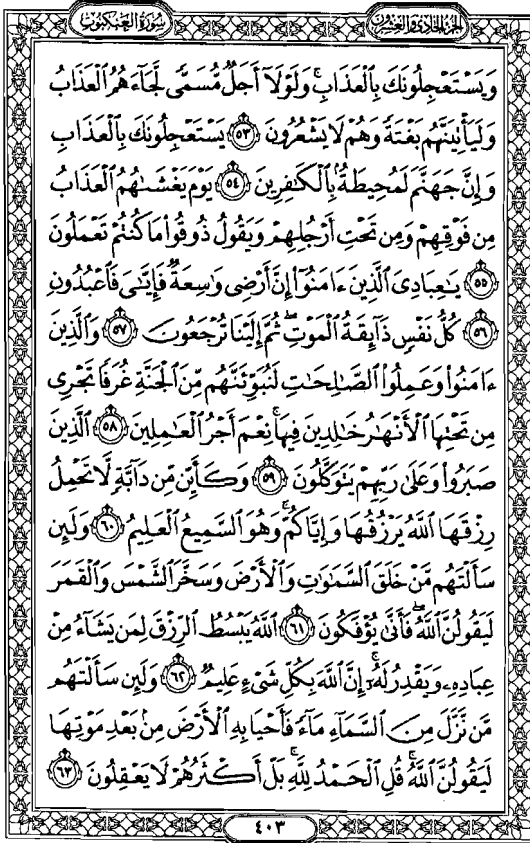 سُورَةُ العَنكَبُوتِ
الجُزْءُ الحَادِي وَالعِشْرُونَ
وَيَسْتَعْجِلُونَكَ بِٱلْعَذَابِ ۚ وَلَوْلَآ أَجَلٌ مُّسَمًّى لَّجَآءَهُمُ ٱلْعَذَابُ
وَلَيَأْتِيَنَّهُم بَغْتَةً وَهُمْ لَا يَشْعُرُونَ ٥٣ يَسْتَعْجِلُونَكَ بِٱلْعَذَابِ
وَإِنَّ جَهَنَّمَ لَمُحِيطَةٌۢ بِٱلْكَٰفِرِينَ ٥٤ يَوْمَ يَغْشَىٰهُمُ ٱلْعَذَابُ
مِن فَوْقِهِمْ وَمِن تَحْتِ أَرْجُلِهِمْ وَيَقُولُ ذُوقُوا۟ مَا كُنتُمْ تَعْمَلُونَ
٥٥ يَٰعِبَادِىَ ٱلَّذِينَ ءَامَنُوٓا۟ إِنَّ أَرْضِى وَٰسِعَةٌ فَإِيَّٰىَ فَٱعْبُدُونِ
٥٦ كُلُّ نَفْسٍ ذَآئِقَةُ ٱلْمَوْتِ ۖ ثُمَّ إِلَيْنَا تُرْجَعُونَ ٥٧ وَٱلَّذِينَ
ءَامَنُوا۟ وَعَمِلُوا۟ ٱلصَّٰلِحَٰتِ لَنُبَوِّئَنَّهُم مِّنَ ٱلْجَنَّةِ غُرَفًا تَجْرِى
مِن تَحْتِهَا ٱلْأَنْهَٰرُ خَٰلِدِينَ فِيهَا ۚ نِعْمَ أَجْرُ ٱلْعَٰمِلِينَ ٥٨ ٱلَّذِينَ
صَبَرُوا۟ وَعَلَىٰ رَبِّهِمْ يَتَوَكَّلُونَ ٥٩ وَكَأَيِّن مِّن دَآبَّةٍ لَّا تَحْمِلُ
رِزْقَهَا ٱللَّهُ يَرْزُقُهَا وَإِيَّاكُمْ ۚ وَهُوَ ٱلسَّمِيعُ ٱلْعَلِيمُ ٦٠ وَلَئِن
سَأَلْتَهُم مَّنْ خَلَقَ ٱلسَّمَٰوَٰتِ وَٱلْأَرْضَ وَسَخَّرَ ٱلشَّمْسَ وَٱلْقَمَرَ
لَيَقُولُنَّ ٱللَّهُ ۖ فَأَنَّىٰ يُؤْفَكُونَ ٦١ ٱللَّهُ يَبْسُطُ ٱلرِّزْقَ لِمَن يَشَآءُ مِنْ
عِبَادِهِۦ وَيَقْدِرُ لَهُۥٓ ۚ إِنَّ ٱللَّهَ بِكُلِّ شَىْءٍ عَلِيمٌ ٦٢ وَلَئِن سَأَلْتَهُم
مَّن نَّزَّلَ مِنَ ٱلسَّمَآءِ مَآءً فَأَحْيَا بِهِ ٱلْأَرْضَ مِنۢ بَعْدِ مَوْتِهَا
لَيَقُولُنَّ ٱللَّهُ ۚ قُلِ ٱلْحَمْدُ لِلَّهِ ۚ بَلْ أَكْثَرُهُمْ لَا يَعْقِلُونَ ٦٣
٤٠٣